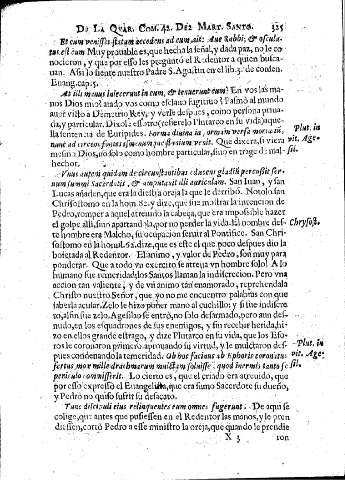 De la Quar. Com. 42. Dez Mart. Santo. 325
Et cum venisset statim accedens ad eum, ait: Aue Rabbi; & oscula-
tus est eum Muy prouable es, que hecha la señal, y dada paz, no le co-
nocieron, y que por esso les preguntó el Redentor a quien busca-
uan. Assi lo siente nuestro Padre S. Agustin en el lib. 3. de consen.
Euang. cap. 5.
At illi manus iniecerunt in eum, & tenuerunt eum? En vos las ma-
nos Dios mio? atado vos como esclauo fugitiuo? Pasmó al mundo
auer visto a Demetrio Rey, y verle despues, como persona priua-
da, y particular. Dixole essotro (refierelo Plutarco en su vida) aque-
lla sentencia de Euripides.
que dixera, si viera
mesmo a Dios, no solo como hombre particular, sino en trage de mal-
hechor.
Plut. in
vit. Age-
sil.
Vnus autem quidam de circunstantibus educens gladiũ percussit ser-
uum summi Sacerdotis, & amputauit illi auriculam. San Iuan, y san
Lucas añaden, que era la diestra oreja la que le derribó. Notolo san
Chrisostomo en la hom. 82. y dize, que fue muestra la intencion de
Pedro, romper a aquel atreuido la cabeça, que era impossible hazer
el golpe alli, sino apartandola, por no perder la vida. El nombre des-
te hombre era Malcho, su ocupacion seruir al Pontifice. San Chri-
sostomo en la homil. 82. dize, que es este el que poco despues dio la
bofetada al Redentor. El animo, y valor de Pedro, son muy para
ponderar. Que a todo vn exercito se atreua vn hombre solo? A lo
humano fue temeridad, los Santos llaman la indiscrecion. Pero vna
accion tan valiente, y de vn animo tan enamorado, reprehendala
Christo nuestro Señor, que yo no me encuentro palabras con que
saberla acusar. Zelo le hizo poner mano al cuchillo, y si fue indiscre-
to, al fin fue zelo. Agesilao se entró, no solo desarmado, pero aun des-
nudo, en los esquadrones de sus enemigos, y sin recebir herida, hi-
zo en ellos grande estrago, y dize Plutarco en su vida, que los Efo-
ros le coronaron primero aprouando su virtud, y le mulctaron des-
pues condenando la temeridad. Ob hoc facinus ab Ephoris coronatus
fertur mox mille drachmarum mulctam soluisse: quod inermis tanto se
periculo commisserit. Lo cierto es, que el criado era atreuido, que
por esso expressó el Euangelista, que era sumo Sacerdote su dueño,
y Pedro no quiso sufrir su desacato.
Chrysost.
Plut. in
vit. Age-
sil.
Tunc discipuli eius relinquentes eum omnes fugerunt. De aqui se
colige, que antes que pusiessen en el Redentor las manos, y le pren-
diessen, cortó Pedro a esse ministro la oreja, que quando le prendie
X 3 ron